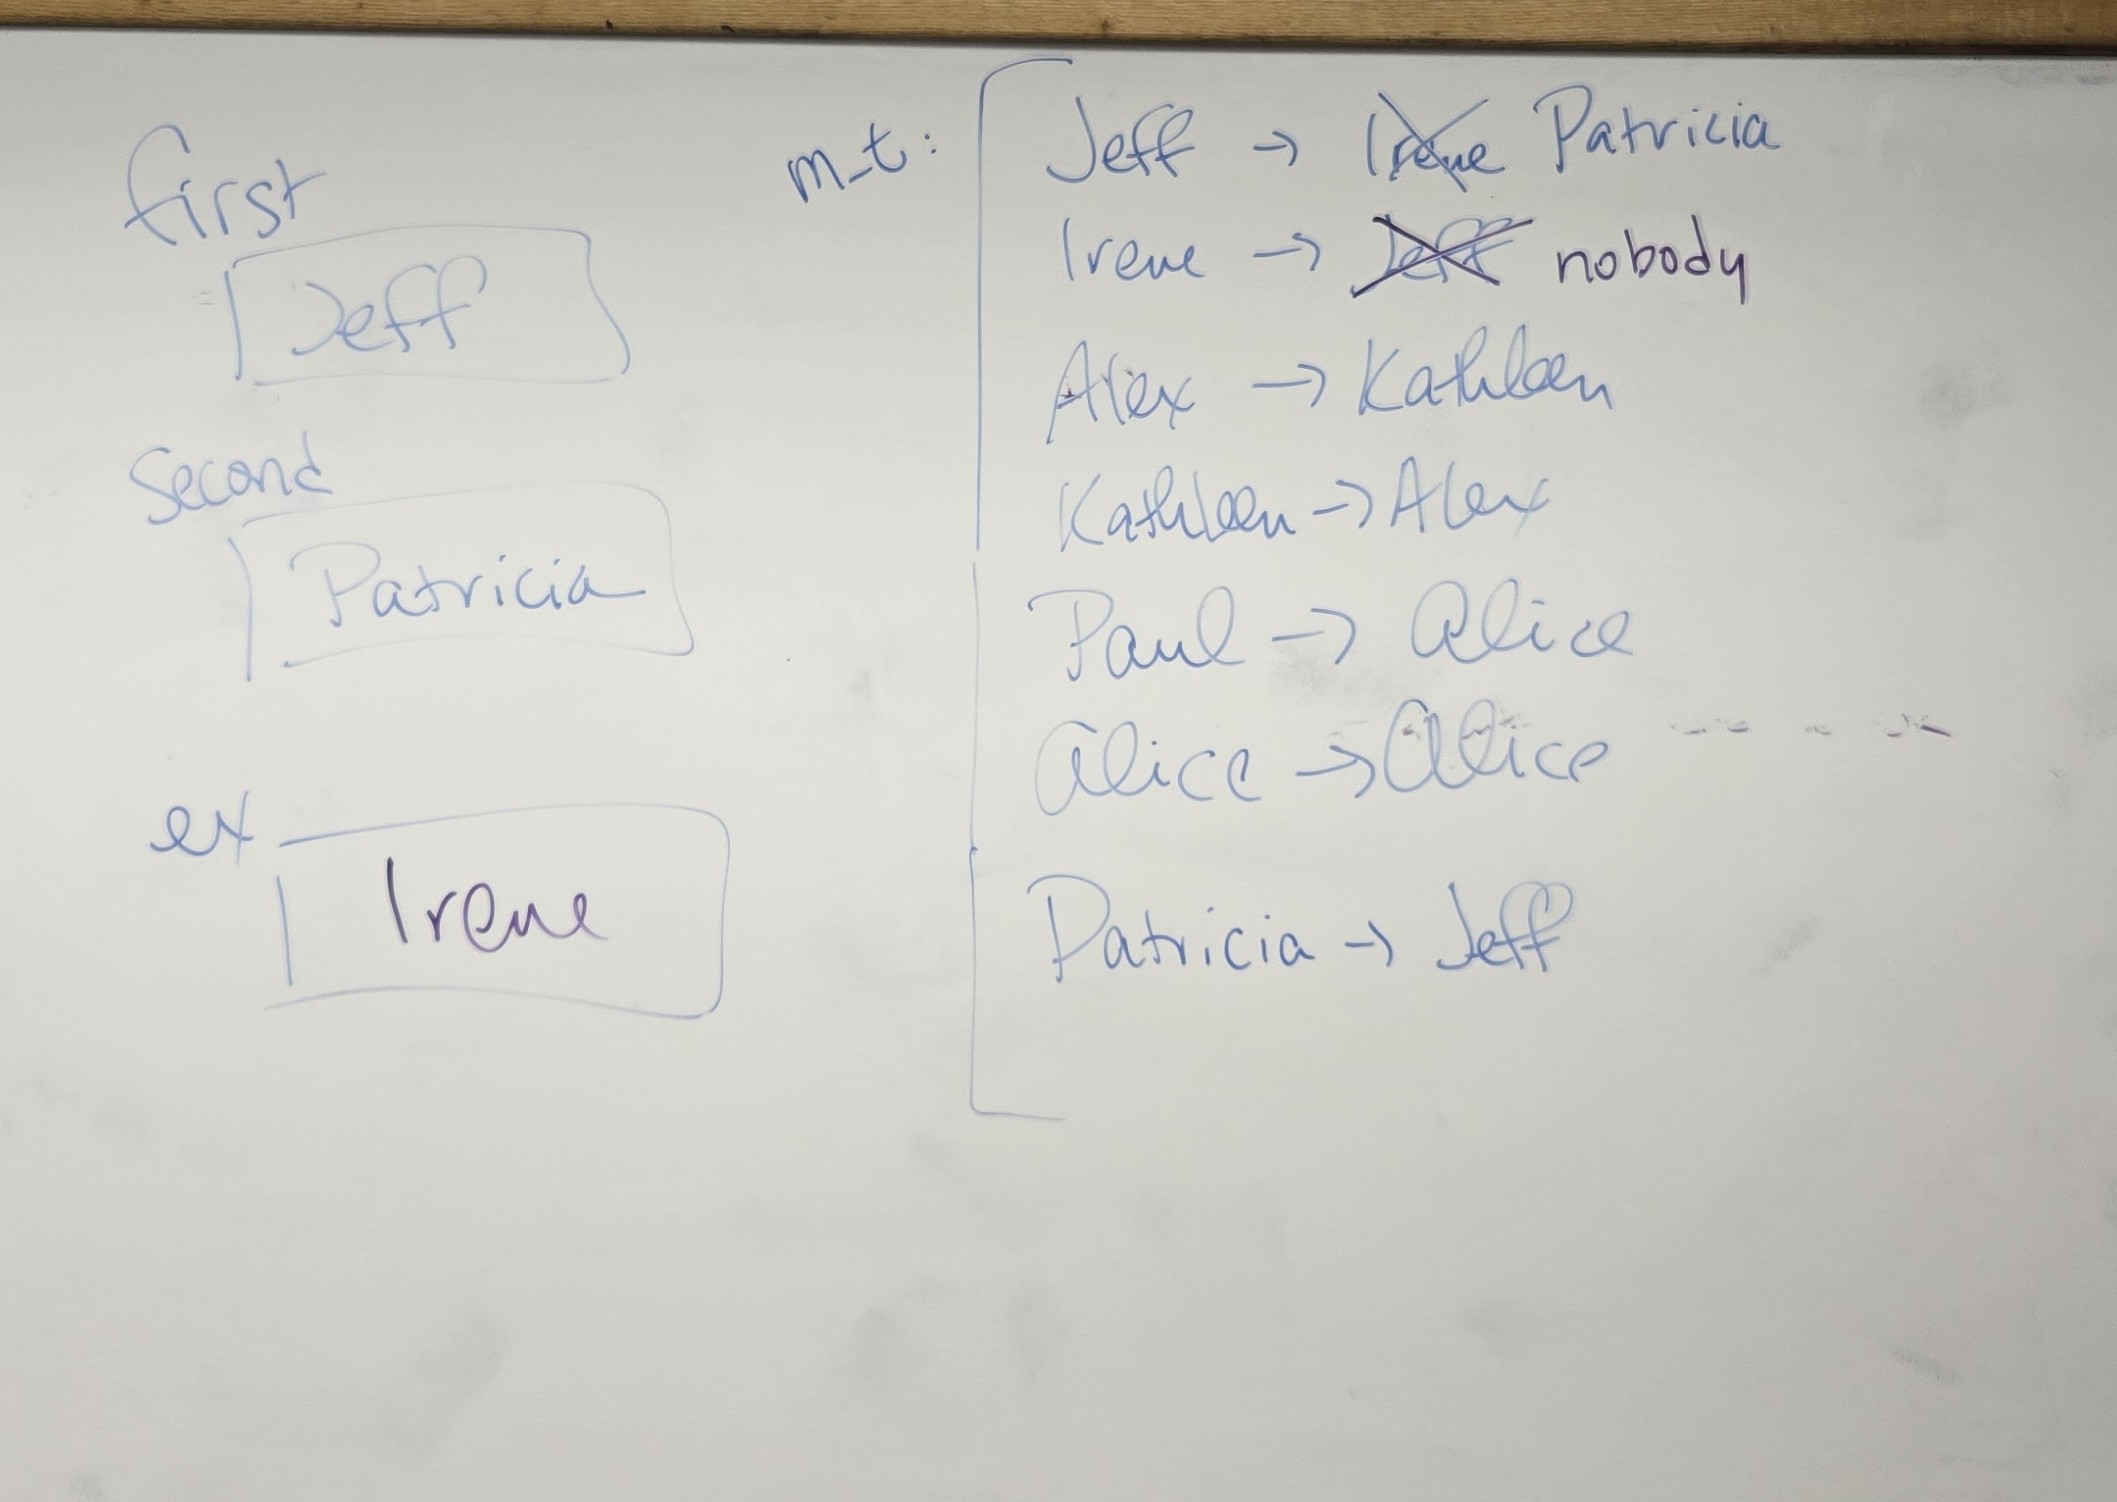 first
Jeff
Second
Patricia
ex
Irene
m_t:
Jeff → Irene Patricia
Irene → Jeff nobody
Alex → Kathleen
Kathleen → Alex
Paul → Alice
Alice → Alice
Patricia → Jeff